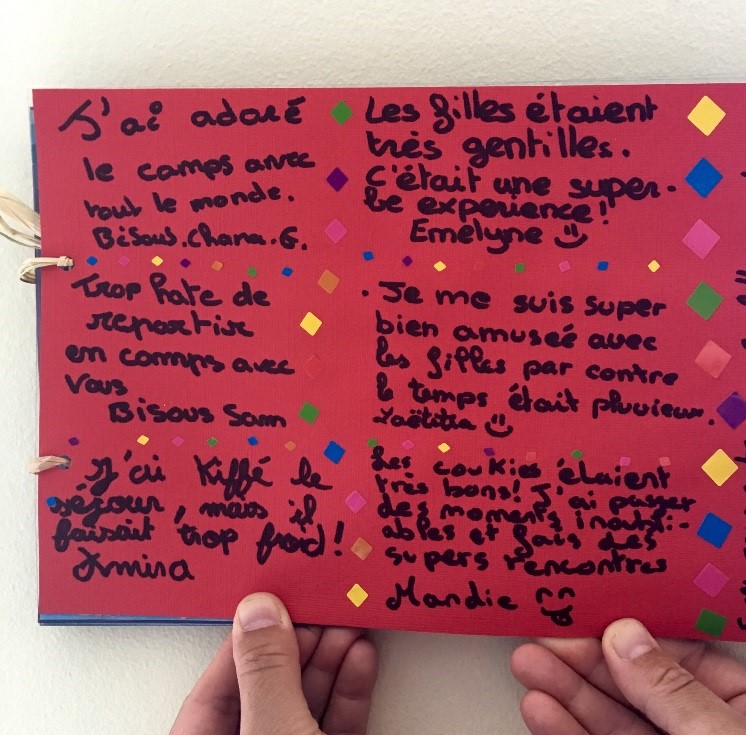 J'ai adoré
le camps avec
tout le monde.
Bisous. Chana. G.
Les filles étaient
très gentilles.
C'était une super-
be experience!
Emelyne
Trop hate de
repartir
en camps avec
vous
Bisous Sam
. Je me suis super
bien amuseé avec
les filles par contre
le temps était pluvieux.
Laëtitia
J'ai Kiffé le
séjour, mais il
faisait trop froid!
Amina
Les cookies étaient
très bons! J'ai passer
des moments inoubli-
ables et fais des
supers rencontres
Mandie